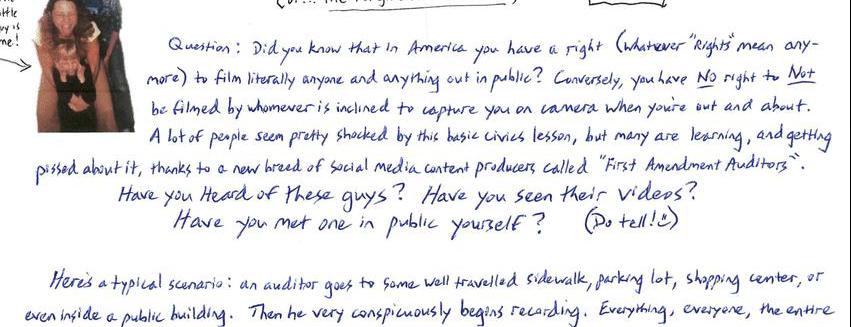 me!
Question: Did you know that in America you have a right (whatever "Rights" mean any-
more) to film literally anyone and anything out in public? Conversely, you have No right to Not
be filmed by whomever is inclined to capture you on camera when you're out and about.
A lot of people seem pretty shocked by this basic civics lesson, but many are learning, and getting
pissed about it, thanks to a new breed of social media content producers called "First Amendment Auditors".
Have you Heard of these guys? Have you seen their videos?
Have you met one in public yourself? (Do tell! :)
Here's a typical scenario: an auditor goes to some well travelled sidewalk, parking lot, shopping center, or
even inside a public building. Then he very conspicuously begins recording. Everything, everyone, the entire